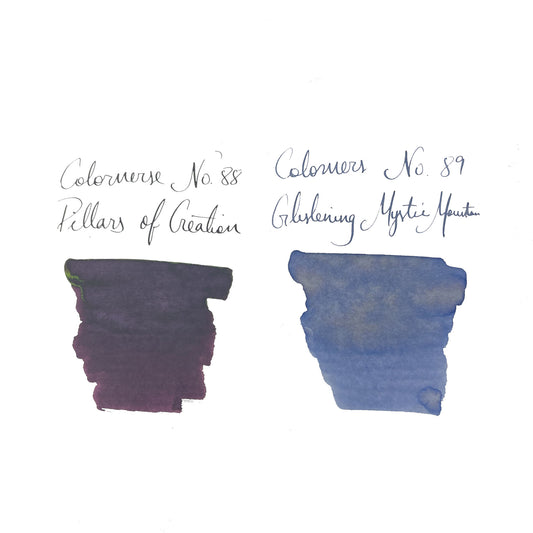 Colorverse No. 88
Pillars of Creation
Colorvers No. 89
Glistening Mystic Mountain